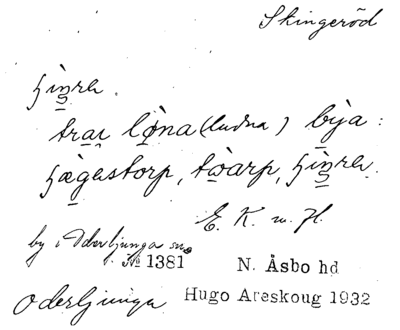 Skingeröd
hi̇̀nrɘ.
trai̯ lȯ̱na (ludna) bi̱ja:
hæ̱gastorp, tẇ̱arp, hi̇̀nrɘ.
E. K. w. H.
by i Oderljunga sn
№ 1381
N. Åsbo hd
Oderljunga
Hugo Areskoug 1932